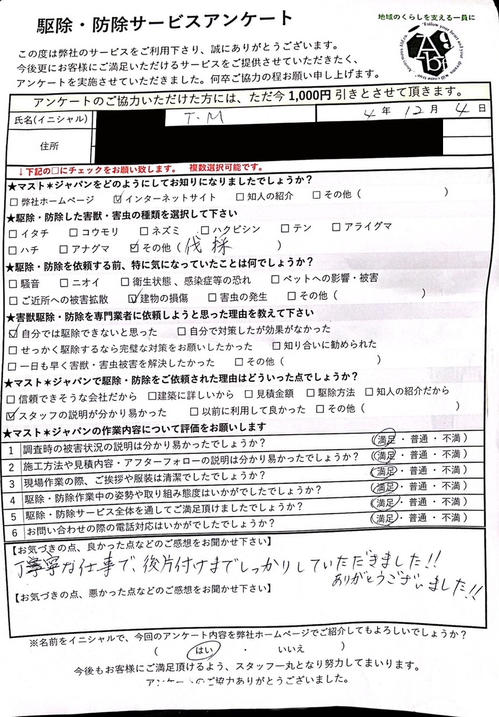 駆除・防除サービスアンケート
地域のくらしを支える一員に
この度は弊社のサービスをご利用下さり、誠にありがとうございます。
今後更にお客様にご満足いただけるサービスをご提供させていただきたく、
アンケートを実施させていただきました。何卒ご協力の程お願い申し上げます。
アンケートのご協力いただけた方には、ただ今1,000円引きとさせて頂きます。
氏名(イニシャル) T.M 4年12月4日
住所
↓下記の□にチェックをお願い致します。 複数選択可能です。
★マスト＊ジャパンをどのようにしてお知りになりましたでしょうか?
□弊社ホームページ ☑インターネットサイト □知人の紹介 □その他( )
★駆除・防除した害獣・害虫の種類を選択して下さい
□イタチ □コウモリ □ネズミ □ハクビシン □テン □アライグマ
□ハチ □アナグマ ☑その他(伐採 )
★駆除・防除を依頼する前、特に気になっていたことは何でしょうか?
□騒音 □ニオイ □衛生状態、感染症等の恐れ □ペットへの影響・被害
□ご近所への被害拡散 ☑建物の損傷 □害虫の発生 □その他( )
★害獣駆除・防除を専門業者に依頼しようと思った理由を教えて下さい
☑自分では駆除できないと思った □自分で対策したが効果がなかった
□せっかく駆除するなら完璧な対策をお願いしたかった □知り合いに勧められた
□一日も早く害獣・害虫被害を解決したかった □その他( )
★マスト＊ジャパンで駆除・防除をご依頼された理由はどういった点でしょうか?
□信頼できそうな会社だから □建築に詳しいから □見積金額 □駆除方法 □知人の紹介だから
☑スタッフの説明が分かり易かった □以前に利用して良かった □その他( )
★マスト＊ジャパンの作業内容について評価をお願いします
1 調査時の被害状況の説明は分かり易かったでしょうか? (満足・普通・不満)
2 施工方法や見積内容・アフターフォローの説明は分かり易かったでしょうか? (満足・普通・不満)
3 現場作業の際、ご挨拶や服装は清潔でしたでしょうか? (満足・普通・不満)
4 駆除・防除作業中の姿勢や取り組み態度はいかがでしたでしょうか? (満足・普通・不満)
5 駆除・防除サービス全体を通してご満足頂けましたでしょうか? (満足・普通・不満)
6 お問い合わせの際の電話対応はいかがでしたでしょうか? (満足・普通・不満)
【お気づきの点、良かった点などのご感想をお聞かせ下さい】
丁寧な仕事で後片付けまでしっかりしていただきました!!
ありがとうございました!!
【お気づきの点、悪かった点などのご感想をお聞かせ下さい】
※名前をイニシャルで、今回のアンケート内容を弊社ホームページでご紹介してもよろしいでしょうか?
( はい ・ いいえ )
今後もお客様にご満足頂けるよう、スタッフ一丸となり努力してまいります。
アンケートのご協力ありがとうございました。